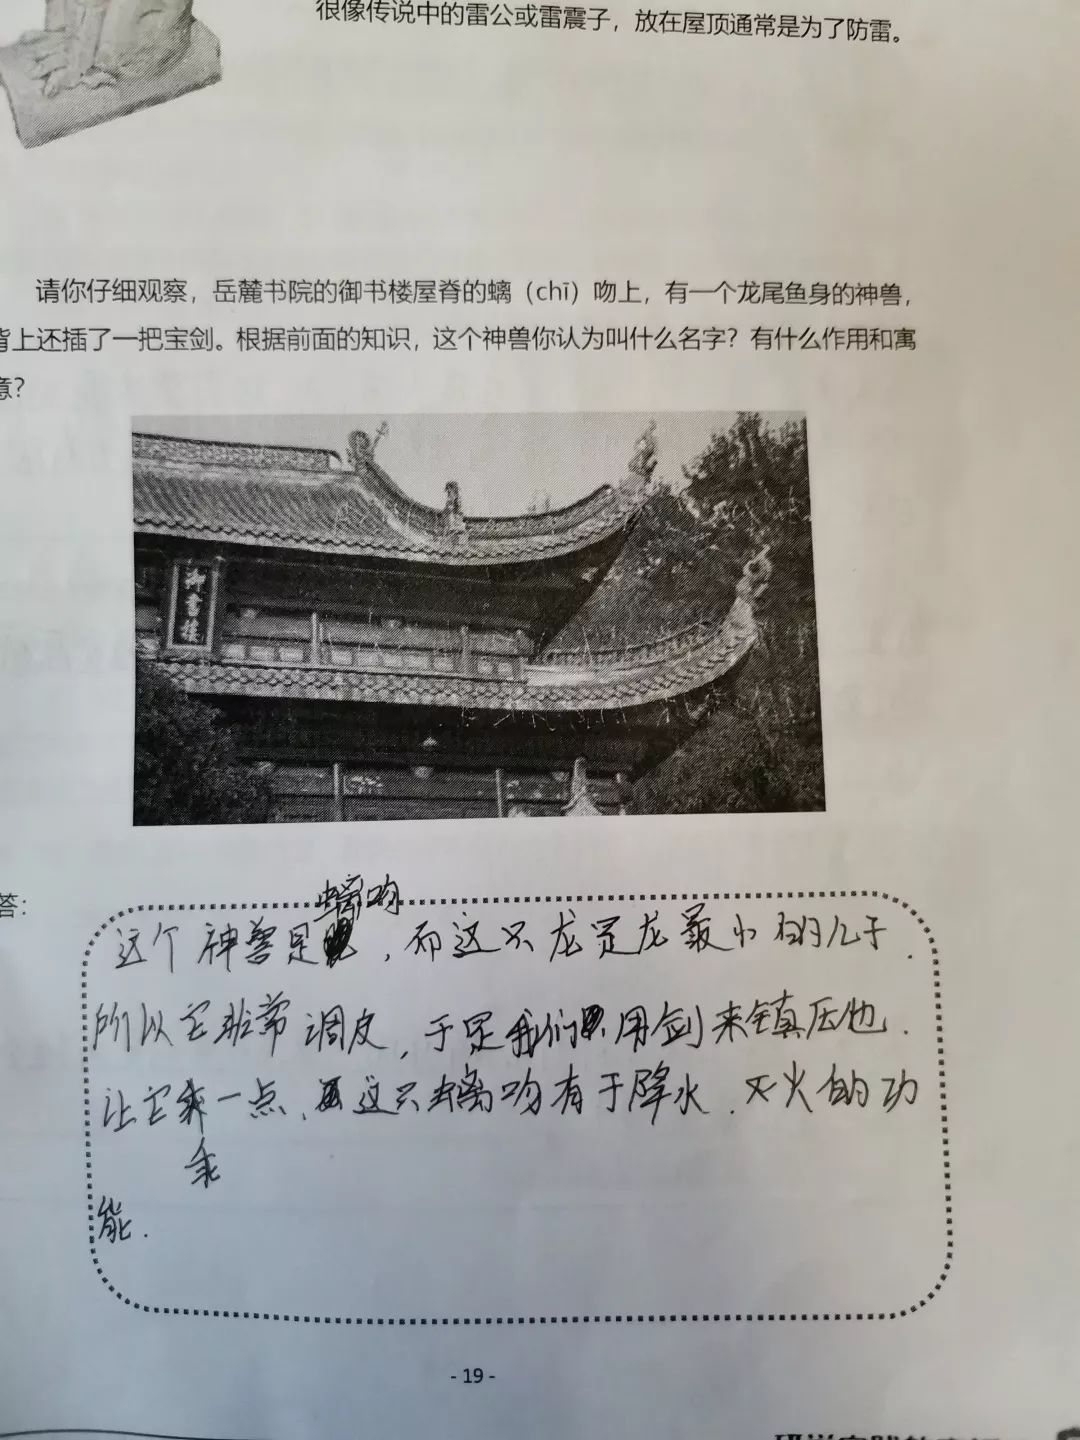 很像传说中的雷公或雷震子，放在屋顶通常是为了防雷。
请你仔细观察，岳麓书院的御书楼屋脊的螭（chī）吻上，有一个龙尾鱼身的神兽，
背上还插了一把宝剑。根据前面的知识，这个神兽你认为叫什么名字？有什么作用和寓
意？
御书楼
答：
螭吻
这个神兽是，而这只龙是龙最小的儿子.
所以它非常调皮，于是我们用剑来镇压他.
让它乖一点，这只螭吻有于降水.灭火的功
乖
能.
- 19 -